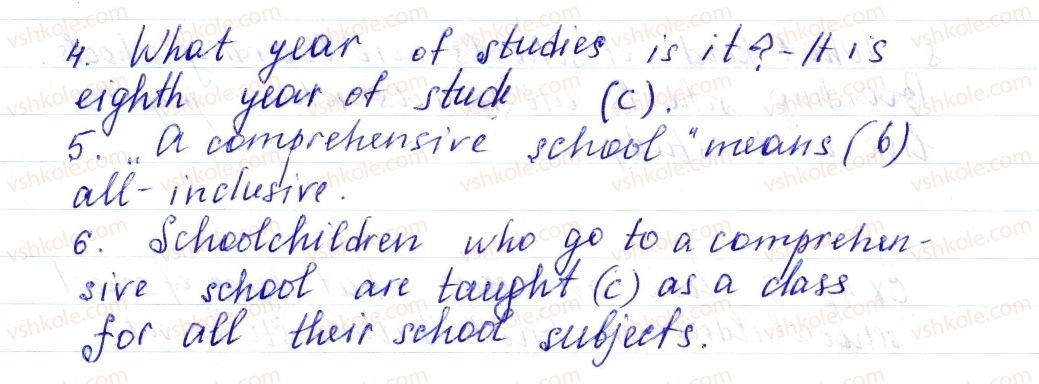 4. What year of studies is it? - It is
eighth year of stude (c).
5. „A comprehensive school" means (b)
all-inclusive.
6. Schoolchildren who go to a comprehen-
sive school are taught (c) as a class
for all their school subjects.